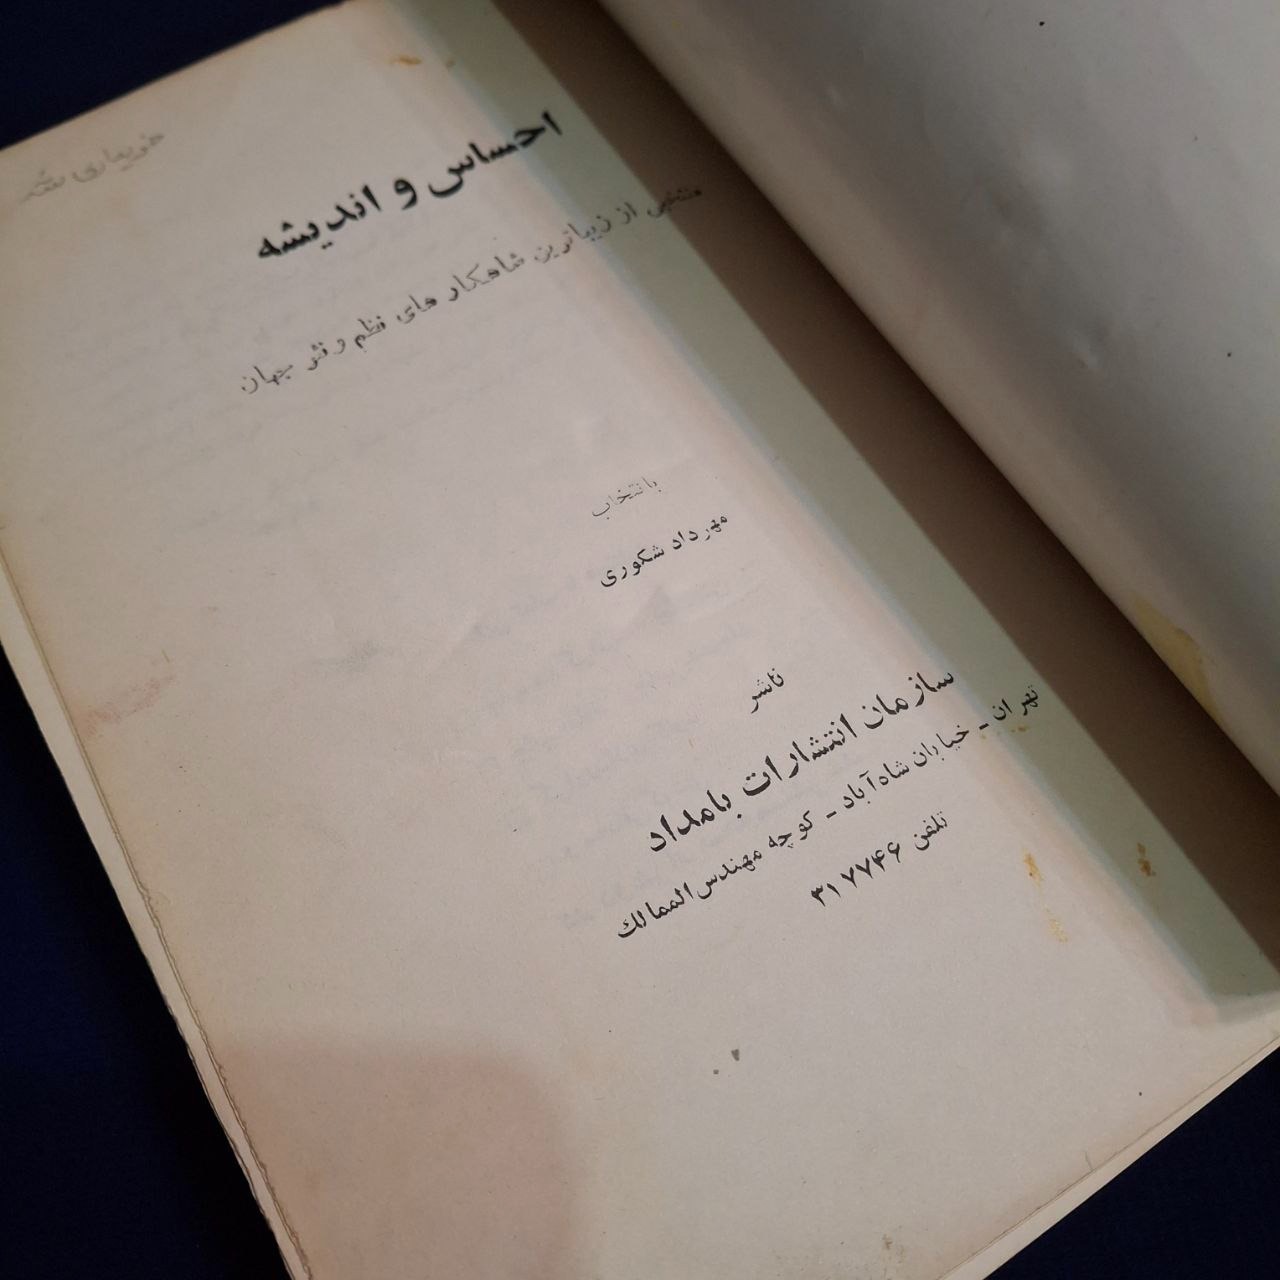 خریداری شد
احساس و اندیشه
منتخبی از زیباترین شاهکار های نظم و نثر جهان
با نتخاب
مهرداد شکوری
ناشر
سازمان انتشارات بامداد
تهران - خیابان شاه‌آباد - کوچه مهندس‌الممالک
تلفن ۳۱۷۷۴۶